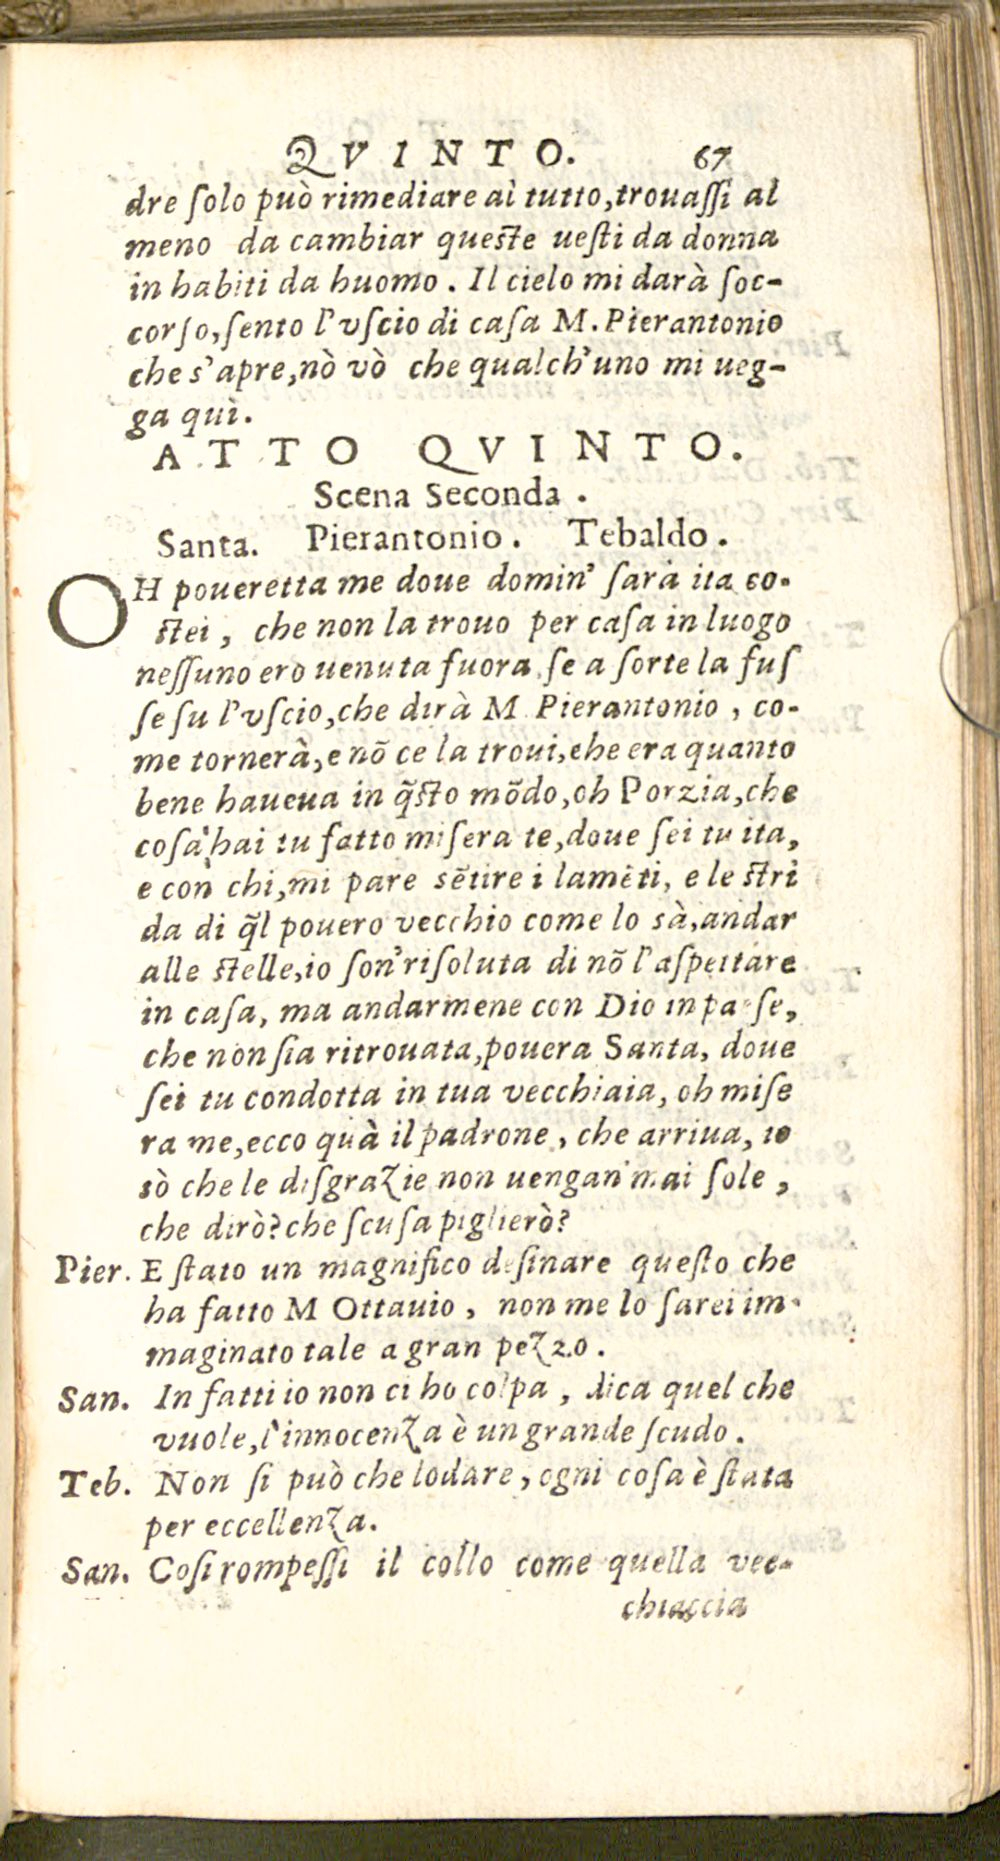 QVINTO. 67
dre ſolo può rimediare al tutto,trouaſſi al
meno da cambiar queſte ueſti da donna
in habiti da huomo . Il cielo mi darà ſoc-
corſo,ſento l'vſcio di caſa M.Pierantonio
che s'apre,nò vò che qualch'uno mi ueg-
ga quì.
ATTO QVINTO.
Scena Seconda .
Santa. Pierantonio . Tebaldo .
OH poueretta me doue domin' ſarà ita co-
ſtei , che non la trouo per caſa in luogo
neſſuno ero uenuta fuora ſe a ſorte la fuſ
ſe ſu l'vſcio,che dirà M Pierantonio , co-
me tornerà,e nõ ce la troui,che era quanto
bene haueua in q̃ſto mõdo,oh Porzia,che
coſa hai tu fatto miſera te,doue ſei tu ita,
e con chi,mi pare sẽtire i lamẽti, e le ſtri
da di q̃l pouero vecchio come lo sà,andar
alle ſtelle,io ſon'riſoluta di nõ l'aſpettare
in caſa, ma andarmene con Dio in paeſe,
che non ſia ritrouata,pouera Santa, doue
ſei tu condotta in tua vecchiaia, oh miſe
ra me,ecco quà il padrone , che arriua, io
sò che le diſgrazie non uengan'mai ſole ,
che dirò?che ſcuſa piglierò?
Pier. E ſtato un magnifico deſinare queſto che
ha fatto M Ottauio , non me lo ſarei im-
maginato tale a gran pezzo .
San. In fatti io non ci ho colpa , dica quel che
vuole,l'innocenza è un grande ſcudo .
Teb. Non ſi può che lodare , ogni coſa è ſtata
per eccellenza.
San. Coſi rompeſſi il collo come quella vec-
chiaccia